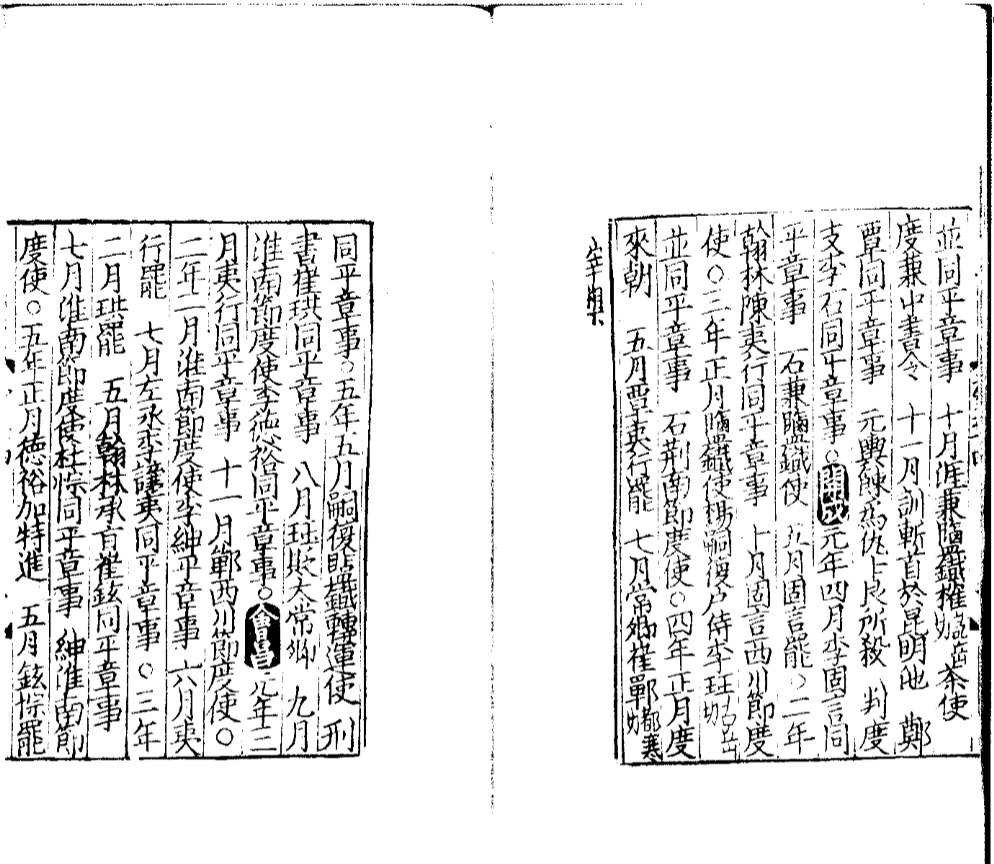 並同平章事　十月涯兼鹽鐵榷茶使
度兼中書令　十一月訓斬首於昆明池　鄭
覃同平章事　元輿餗爲仇士良所殺　判度
支李石同平章事○開成元年四月李固言同
平章事　石兼鹽鐵使　五月固言罷○二年
翰林陳夷行同平章事　十月固言西川節度
使○三年正月鹽鐵使楊嗣復户侍李珏
並同平章事　石荆南節度使○四年正月度
來朝　五月覃夷行罷　七月常卿崔鄲
宰相
同平章事○五年五月嗣復罷鹽鐵轉運使　刑
書崔珙同平章事　八月珏貶太常卿　九月
淮南節度使李德裕同平章事○會昌元年三
月夷行同平章事　十一月鄲西川節度使○
二年二月淮南節度使李紳平章事　六月夷
行罷　七月左丞李讓夷同平章事○三年
二月珙罷　五月翰林承旨崔鉉同平章事
七月淮南節度使杜悰同平章事　紳淮南節
度使○五年正月德裕加特進　五月鉉悰罷